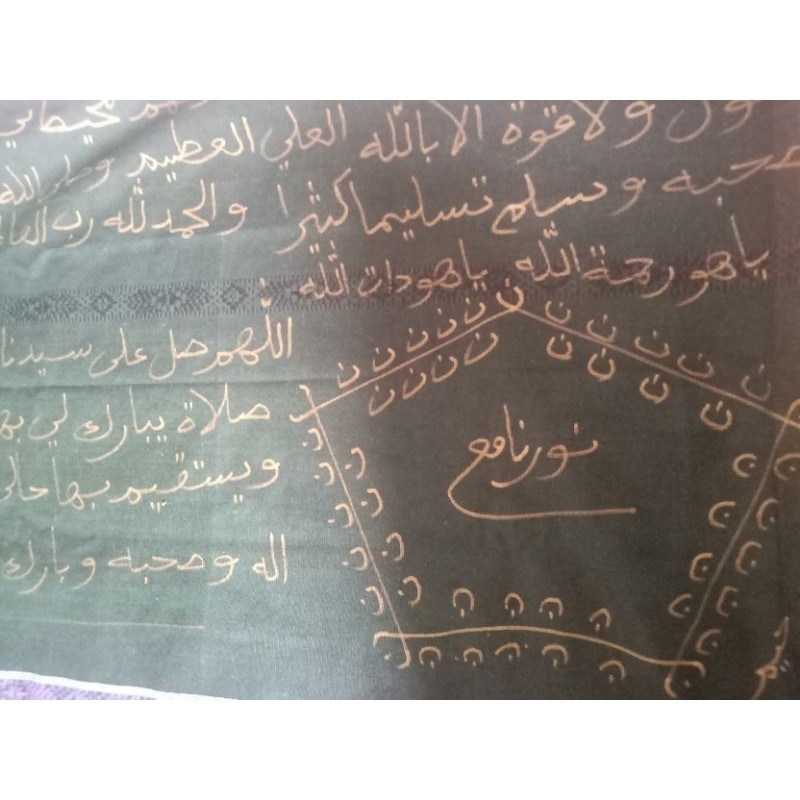 ول ولا قوة الا بالله العلي العظيم وصلى الله
صحبه وسلم تسليما كثيرا والحمد لله رب العا
ياهو رحمة الله ياهو ذات الله
اللهم صل على سيدنا
صلاة يبارك لي بها
ويستقيم بها حالي
اله وصحبه وبارك
ن ن ن ن ن ن ن ن ن ن ن
ن ن ن ن ن ن ن ن
نور نافع
ن ن ن ن ن ن ن ن ن ن
ن ن ن ن ن ن ن ن ن ن